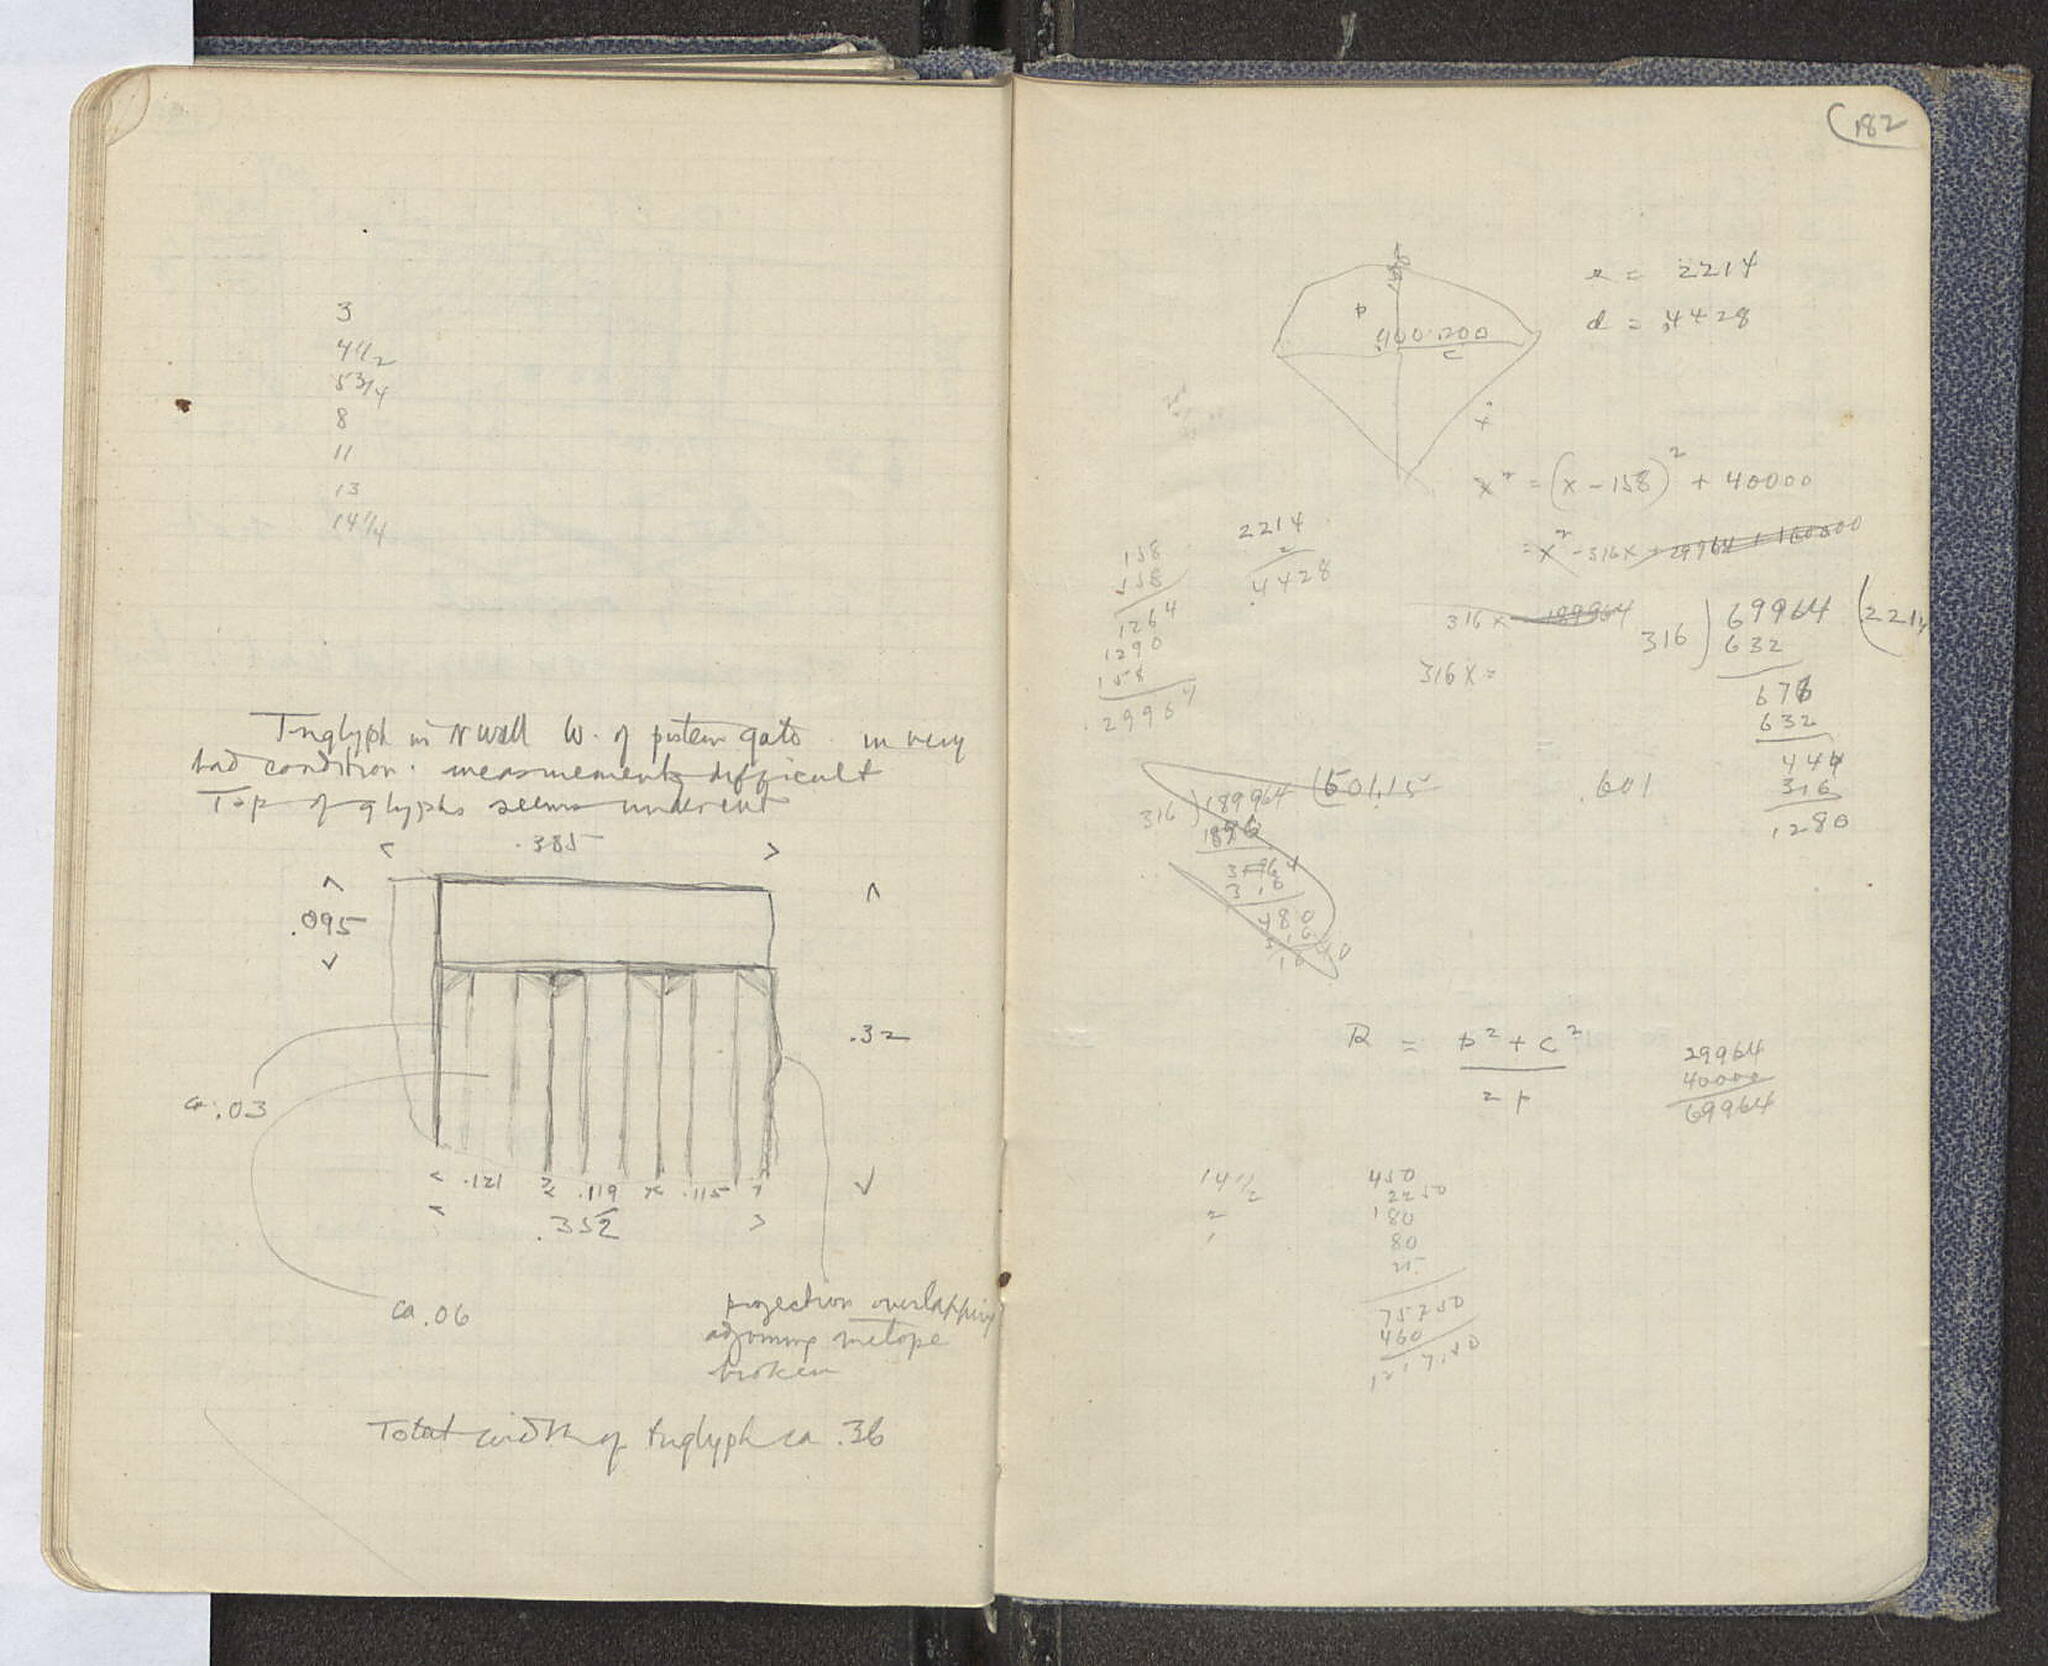 3
4 1/2
5 3/4
8
11
13
14 1/4
Triglyph in N wall W. of postern gate. in very
bad condition. measurements difficult
Top of glyphs seems undercut
.385
.095
.32
ca .03
.121 .119 .115
.352
ca .06
projection overlapping
adjoining metope
broken
Total width of triglyph ca .36
182
r = 2214
d = .4428
p
.400 .200
c
x
x² = (x - 158)² + 40000
= x² - 316x + 29964 + 160000
158
158
1264
1290
158
29964
2214
2
.4428
316x = 189964
316x =
316 ) 69964 ( 2214
632
676
632
444
316
1280
316 ) 189964 ( 601.15
1896
364
316
480
316
.601
R = p² + c²
2p
29964
40000
69964
14 1/2
2
1
450
2250
180
80
25
75250
460